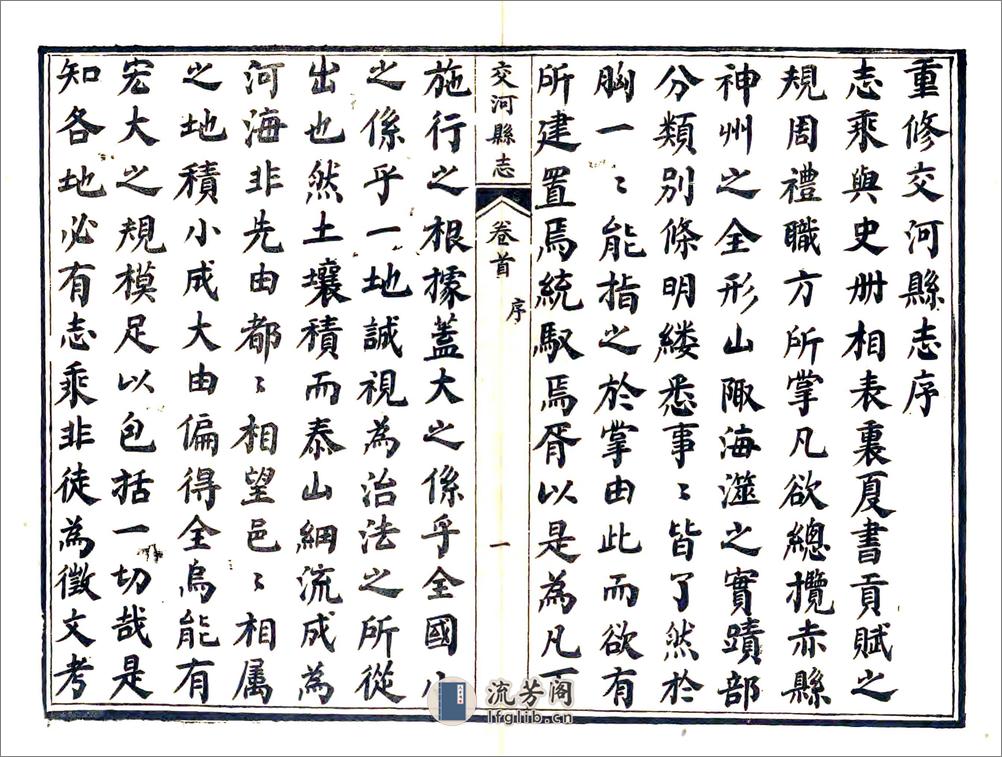 重修交河縣志序
志乘與史册相表裏夏書貢賦之
規周禮職方所掌凡欲總攬赤縣
神州之全形山陬海澨之實蹟部
分類別條明縷悉事〻皆了然於
胸一〻能指之於掌由此而欲有
所建置焉統馭焉胥以是為凡
交河縣志
卷首
序
一
施行之根據蓋大之係乎全國小
之係乎一地誠視為治法之所從
出也然土壤積而泰山細流成為
河海非先由都〻相望邑〻相属
之地積小成大由偏得全烏能有
宏大之規模足以包括一切哉是
知各地必有志乘非徒為徵文考
流芳阁
lfglib.cn